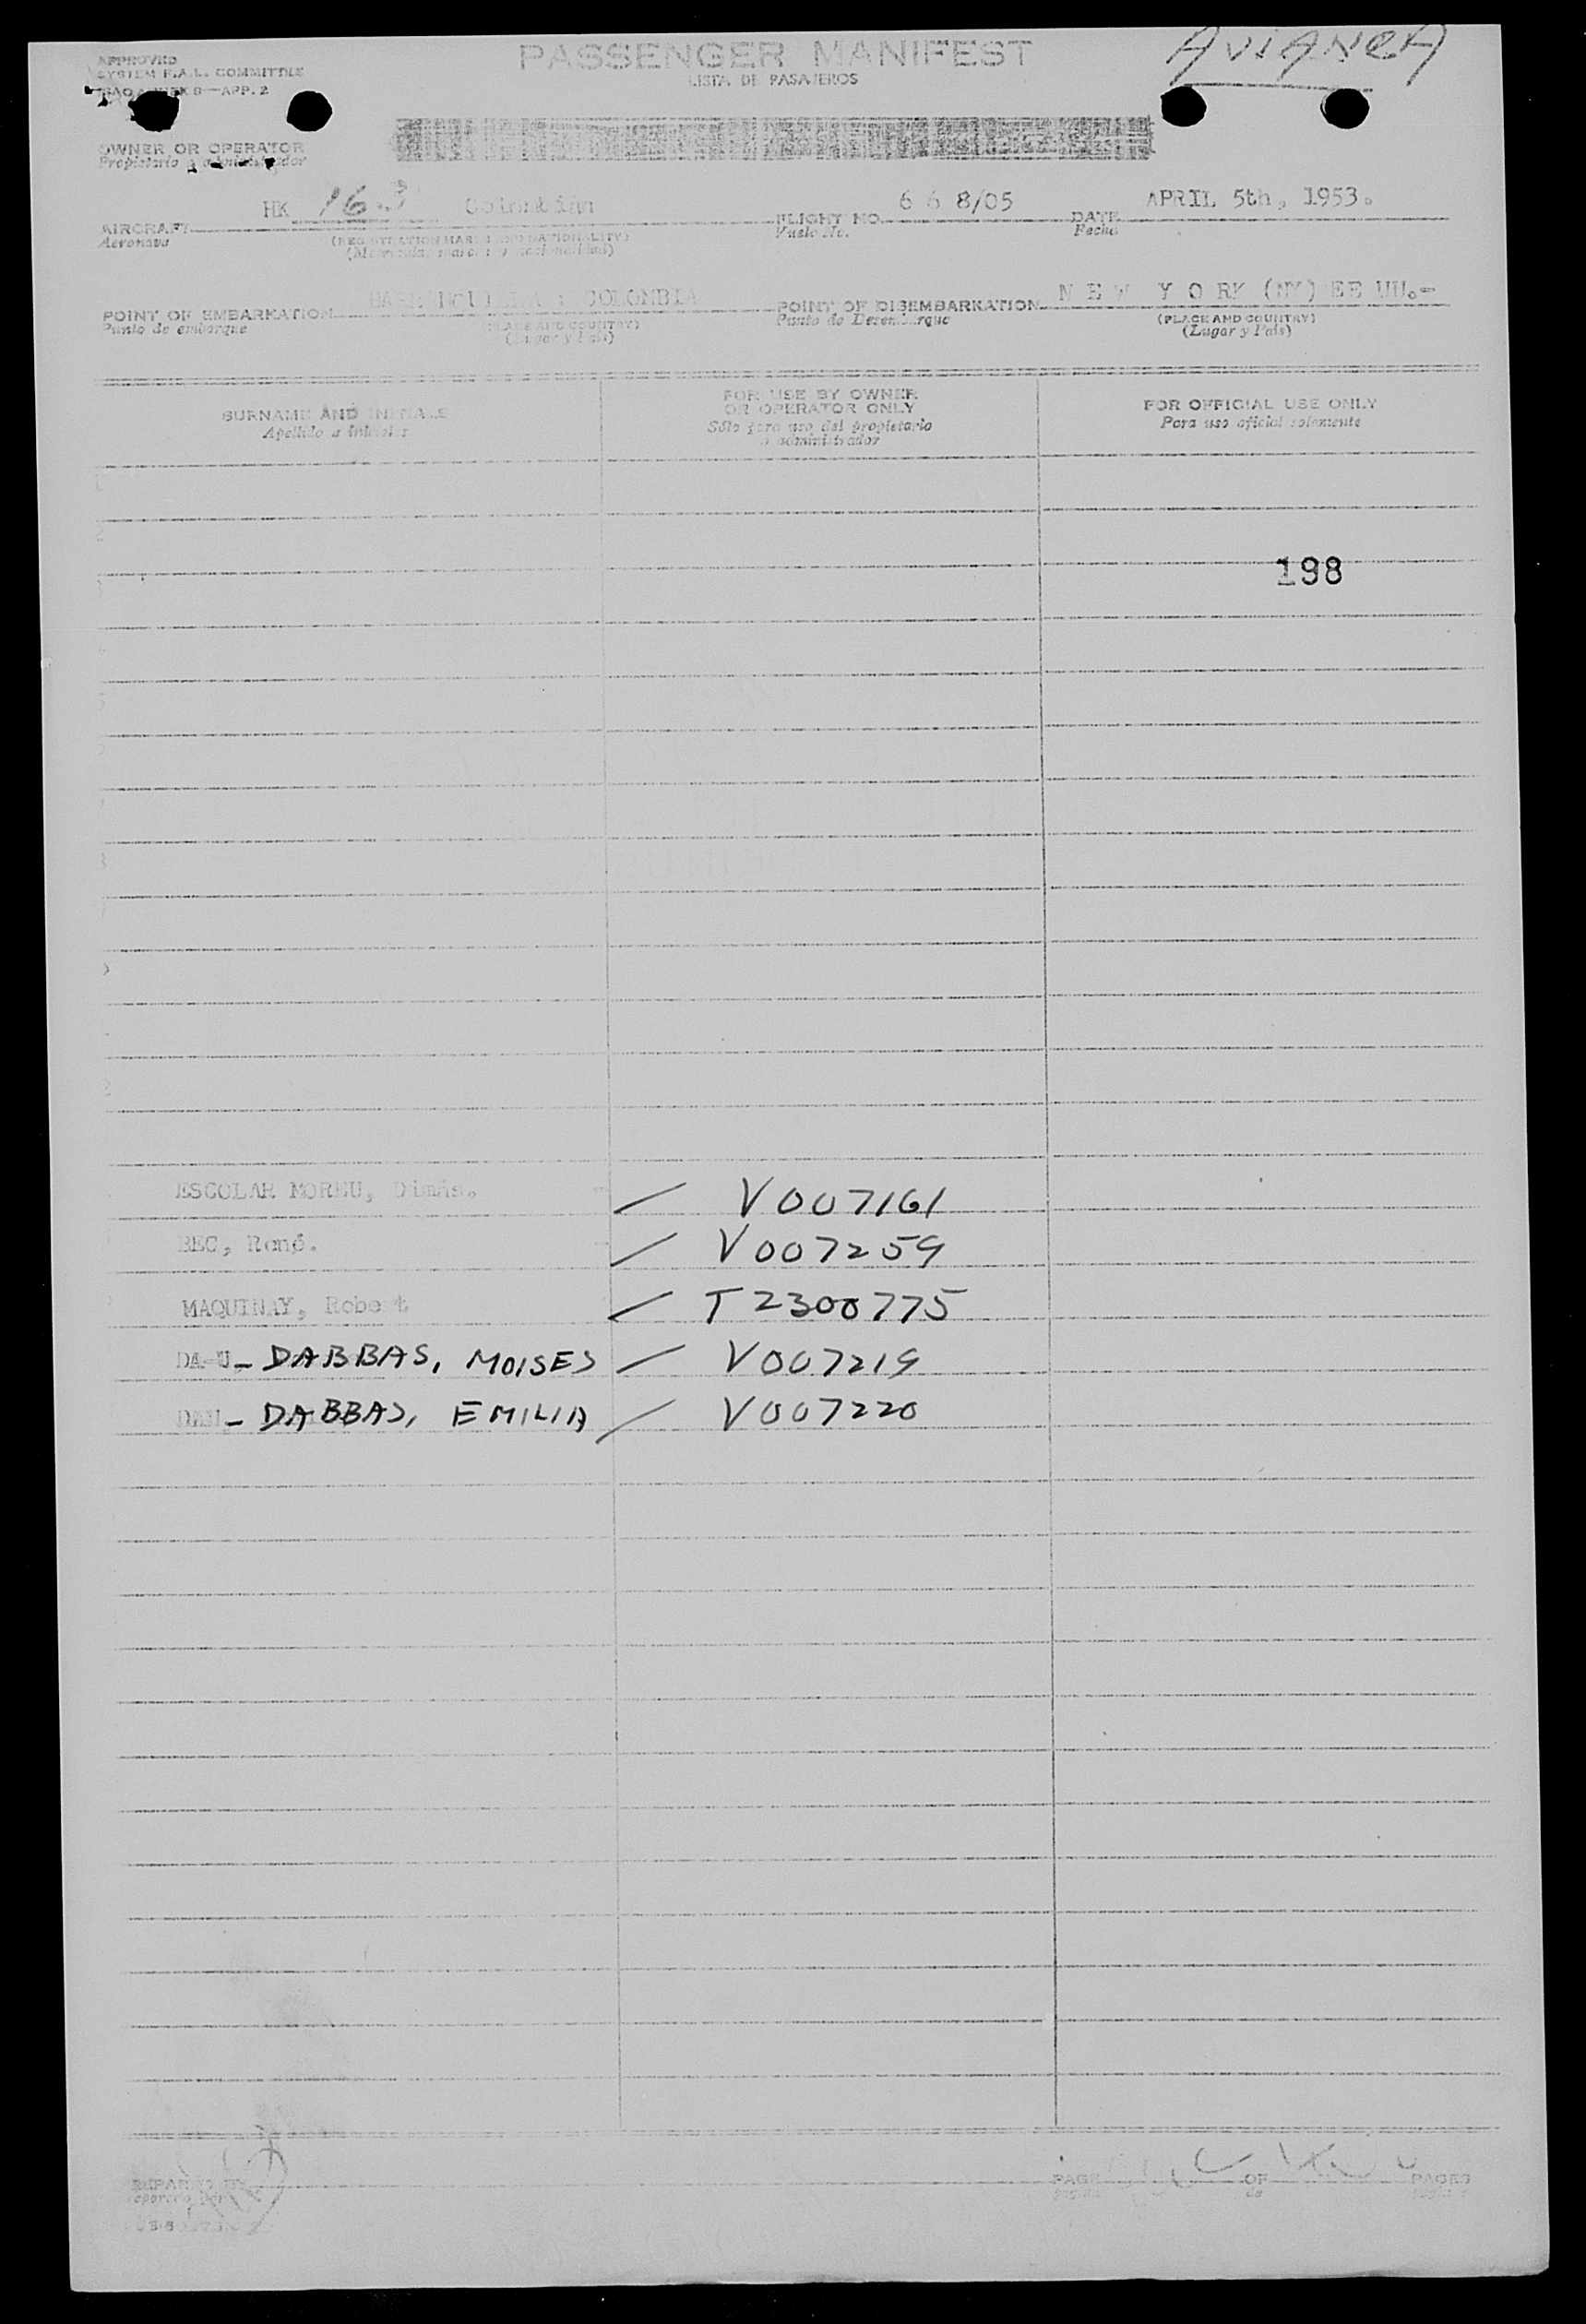 APPROVED
SYSTEM F.A.L. COMMITTEE
8—APP. 2
PASSENGER MANIFEST
LISTA DE PASAJEROS
AVIANCA
OWNER OR OPERATOR
Propietario o administrador
AIRCRAFT HK 16 Colombian FLIGHT NO. 6 6 8/05 DATE APRIL 5th, 1953.
Aeronave Vuelo No. Fecha
POINT OF EMBARKATION COLOMBIA POINT OF DISEMBARKATION N E W Y O RK (NY) EE UU.-
Punto de embarque (PLACE AND COUNTRY) Punto de Desembarque (PLACE AND COUNTRY)
(Lugar y País) (Lugar y País)
SURNAME AND INITIALS FOR USE BY OWNER OR OPERATOR ONLY FOR OFFICIAL USE ONLY
Apellido e iniciales Sólo para uso del propietario o administrador Para uso oficial solamente
198
ESCOLAR MOREU, Dimás. V007161
BEC, René. V007259
MAQUINAY, Robert T2300775
DABBAS, MOISES V007219
DABBAS, EMILIA V007220
PAGE OF PAGES